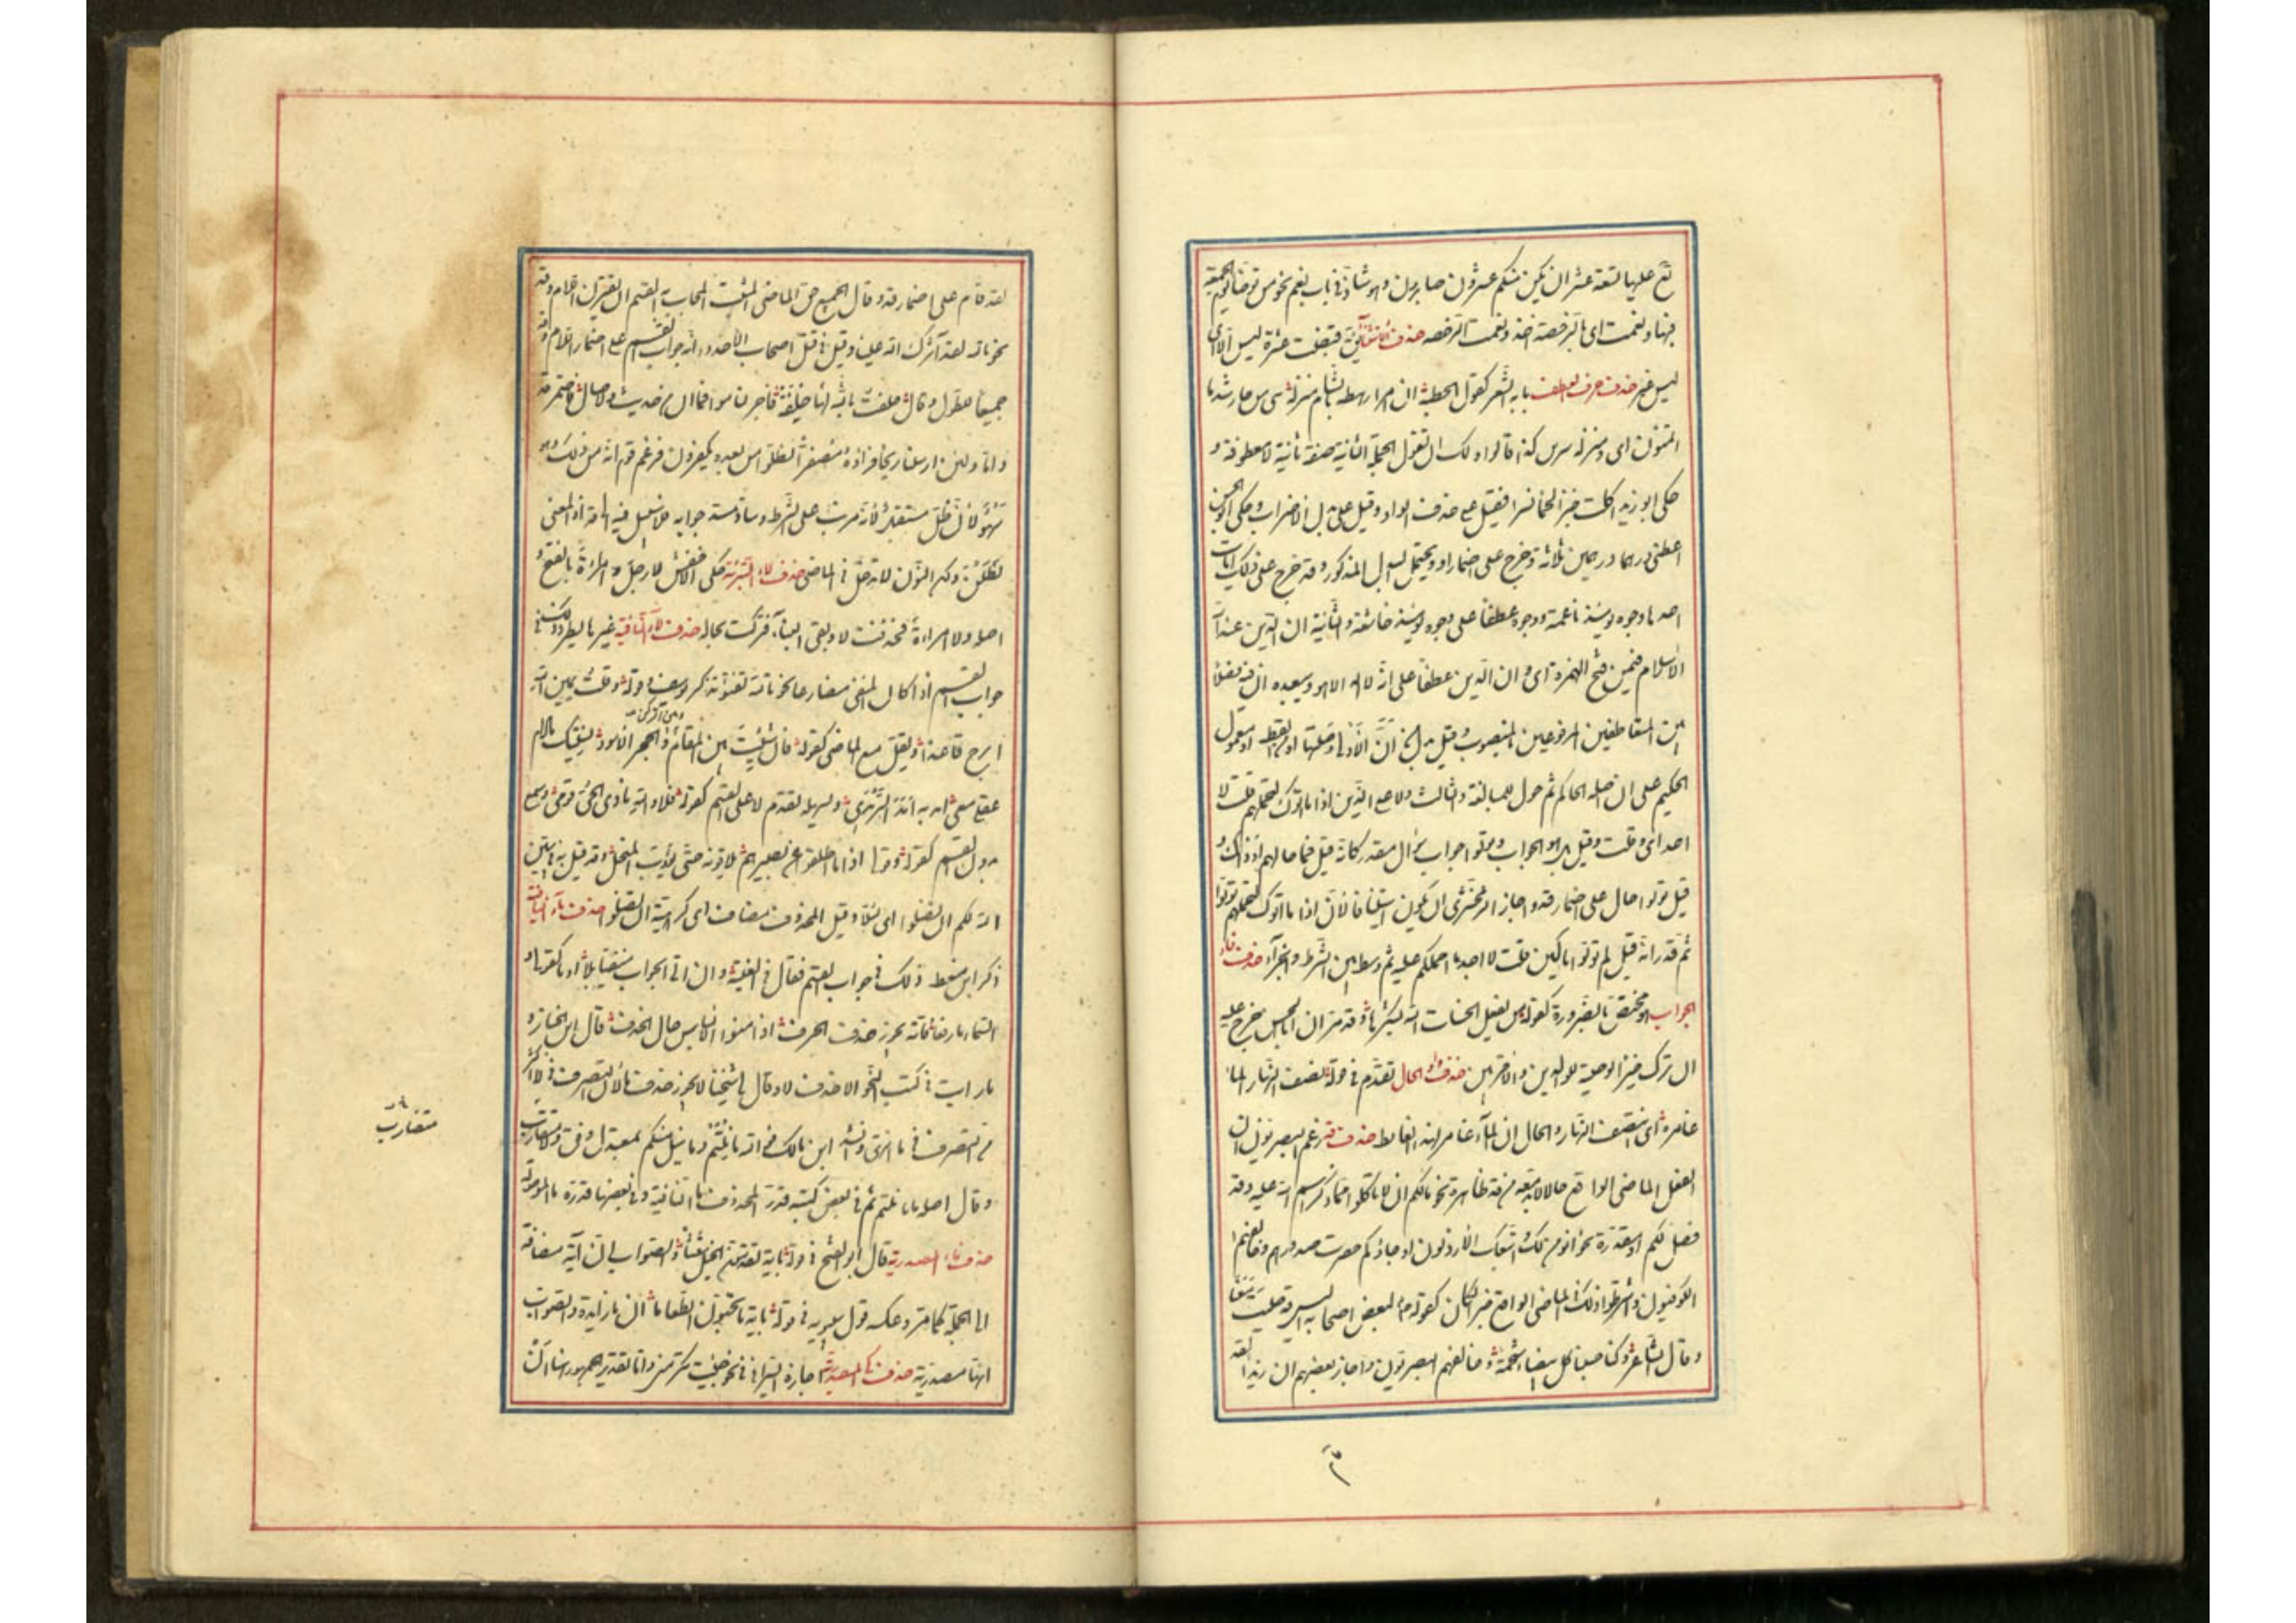 نع عليها تسعة عشر ان يكن منكم عشرون صابرون وهو شاذ في باب نعم نحو من توضأ يوم الجمعة
فبها ونعمت اى فبالرخصة اخذ ونعمت الرخصة حذف فقبضت عشرة ليس الا اى
ليس غير حذف حرف العطف بابه الشعر كقول الحطيئة ان امرأ رهطه بالشام منزله جار شد ما
اى ومنزله كذا قالوا ولك ان تقول الجملة الثانية صفة ثانية لا معطوفة و
حكى ابو زيد اكلت خبزا لحما تمرا فقيل على حذف الواو وقيل على بدل الاضراب وحكى ابو الحسن
اعطى درهما درهمين ثلاثة وخرج على اضمار او ويحتمل البدل المذكور وقد خرج على ذلك آيات
احدها وجوه يومئذ ناعمة ووجوه عطفا على وجوه يومئذ خاشعة والثانية ان الدين عند الله
الاسلام فيمن فتح الهمزة اى وان الدين عطفا على انه لا اله الا هو ويبعده ان فيه فصلا
بين المتعاطفين المرفوعين بالمنصوب وقيل بدل من ان الاولى وصلتها او من القسط او معمول
الحكيم على ان اصله الحاكم ثم حول للمبالغة والثالث ولا على الذين اذا ما اتوك لتحملهم قلت لا
اجد اى وقلت وقيل بل هو الجواب وتولوا جواب سؤال مقدر كانه قيل فما حالهم اذ ذاك و
قيل تولوا حال على اضمار قد واجاز الزمخشرى ان يكون استينافا كأن اذا ما اتوك لتحملهم تولوا
ثم قدر انه قيل لم تولوا باكين قلت لا اجد ما احملكم عليه ثم وسط بين الشرط والجزاء حذف فاء
الجواب هو مختص بالضرورة كقوله من يفعل الحسنات الله يشكرها وقد مر ان ابا الحسن خرج عليه
ان ترك خيرا الوصية للوالدين والاقربين حذف واو الحال تقدم في قوله نصف النهار الماء
غامره اى انتصف النهار والحال ان الماء غامر هذا الغايط حذف قد زعم البصريون ان
الفعل الماضى الواقع حالا لا بد معه من قد ظاهرة نحو ما لكم ان لا تاكلوا مما ذكر اسم الله عليه وقد
فصل لكم او مقدرة نحو انؤمن لك واتبعك الارذلون او جاؤكم حصرت صدورهم وخالفهم
الكوفيون واشترطوا ذلك في الماضى الواقع خبرا لكان كقوله لبعض اصحابه اليس قد صليت معنا
وقال الشاعر وكنا حسبنا كل بيضاء شحمة وخالفهم البصريون واجاز بعضهم ان زيدا لقد
٣
لقد قام على اضمار قد وقال الجميع حق الماضى المثبت المجاب به القسم ان يقترن باللام وقد
نحو تالله لقد آثرك الله علينا وقيل في قتل اصحاب الاخدود انه جواب القسم على اضمار اللام وقد
جميعا للطول وقال حلفت بالله انها حلفة فاجر لناموا فما ان من حديث ولا صال فاضمر قد
واما ولئن ارسلنا ريحا فراوه مصفرا لظلوا من بعده يكفرون فزعم قوم انه من ذلك وهو
سهو لان ظل مستقبل لانه مرتب على الشرط وساد مسد جوابه فلا سبيل فيه لقد اذ المعنى
ليظلن ولكن النون لا تدخل في الماضى حذف لاء التبرئة حكى الاخفش لا رجل و امراءة بالفتح و
اصله ولا امراءة فحذفت لا وبقى البناء فتركت بحاله حذف لاء النافية غيرها يطرد ذلك في
جواب القسم اذا كان المنفى مضارعا نحو تالله تفتؤ تذكر يوسف وقوله وقلت يمين الله
ابرح قاعدا ويقل مع الماضى كقوله فان شئت بين المقام والحجر الاسود نسيتك ما دام
عقلى معى امد به امد السرمدى ويسهله تقدم لا على القسم كقوله فلا والله نادى الحى قومى وسمع
بدون القسم كقوله وقولى اذا ما اطلقوا عن بعيرهم يلاقونه حتى يؤب المنخل وقد قيل به في يبين
الله لكم ان تضلوا اى لئلا وقيل المحذوف مضاف اى كراهية ان تضلوا حذف ماء النافية
ذكر ابن معط ذلك في جواب القسم فقال في الفيته وان اتى الجواب منفيا بلا او ما كقولى و
السماء ما رضا فانه يجوز حذف الحرف اذا امنوا الالباس حال الحذف قال ابن الخباز و
ما رايت في كتب النحو الا حذف لا وقال لى شيخنا لا يجوز حذف ما لان التصرف في لا اكثر
من التصرف في ما انتهى وانشد ابن مالك فو الله ما نلتم وما نيل منكم بمعتدل وفق ولا متقارب
وقال اصله ما ما نلتم ثم في بعض كتبه قدر المحذوف ما النافية وفي بعضها قدره ما الموصولة
حذف ماء المصدرية قال ابو الفتح في قوله بآية تقدمون الخيل شعثا والصواب ان آية مضافة
الى الجملة كما مر وعكسه قول سيبويه في قوله بآية ما تحبون الطعاما ان ما زايدة والصواب
انها مصدرية حذف كى المصدرية اجازه السيرافى في نحو جئت لتكرمنى وانما يقدر الجمهور هنا ان
متقارب